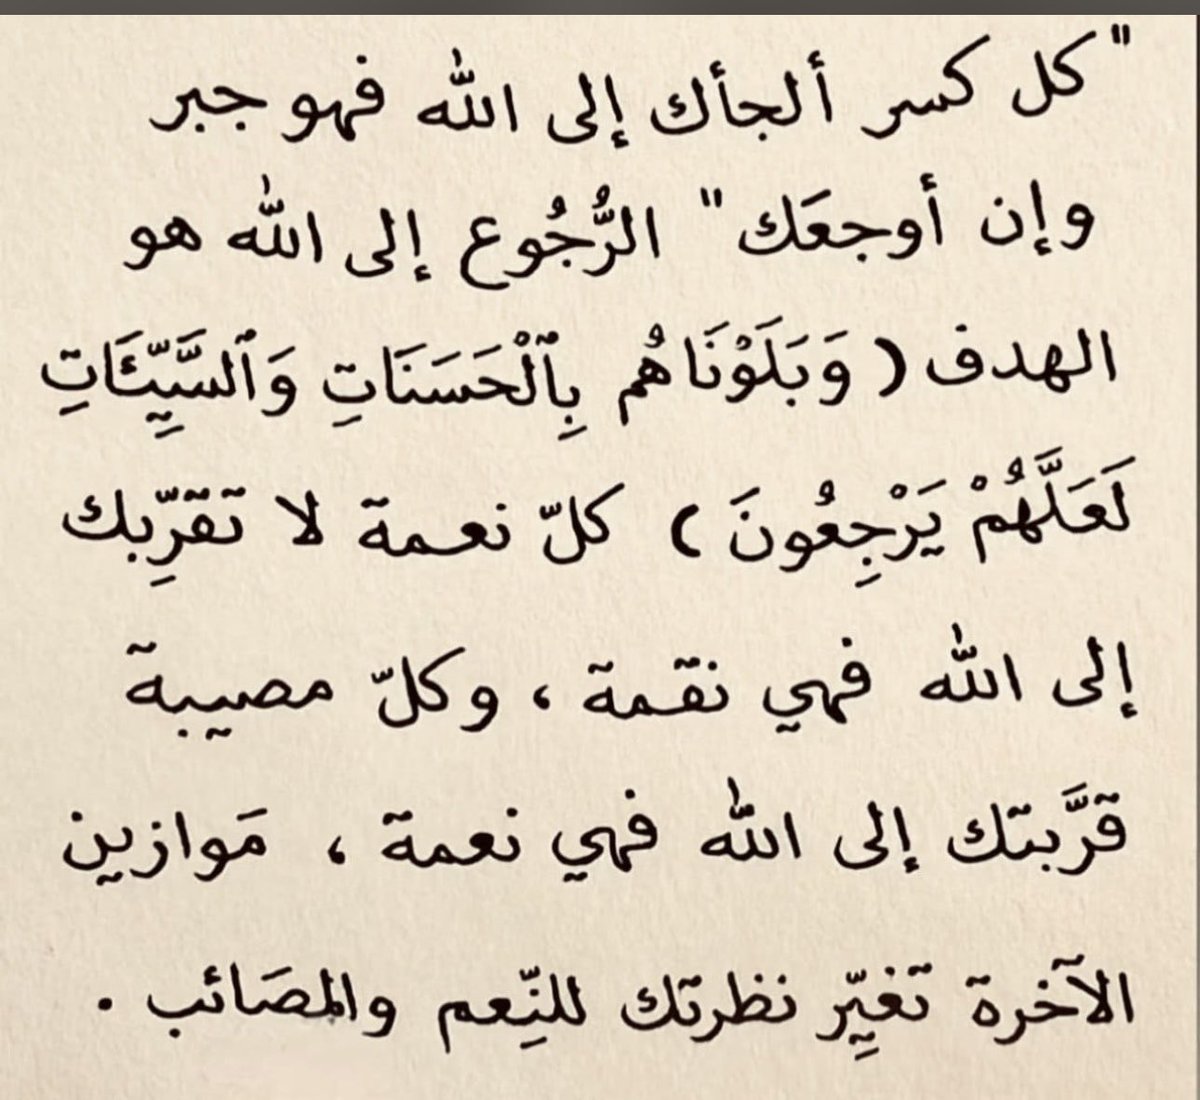 "كل كسر ألجأك إلى الله فهو جبر
وإن أوجعَك" الرُّجُوع إلى الله هو
الهدف ( وَبَلَوْنَاهُم بِٱلْحَسَنَاتِ وَٱلسَّيِّـَٔاتِ
لَعَلَّهُمْ يَرْجِعُونَ ) كلّ نعمة لا تقرِّبك
إلى الله فهي نقمة ، وكلّ مصيبة
قرَّبتك إلى الله فهي نعمة ، مَوازين
الآخرة تغيِّر نظرتك للنِّعم والمصَائب .